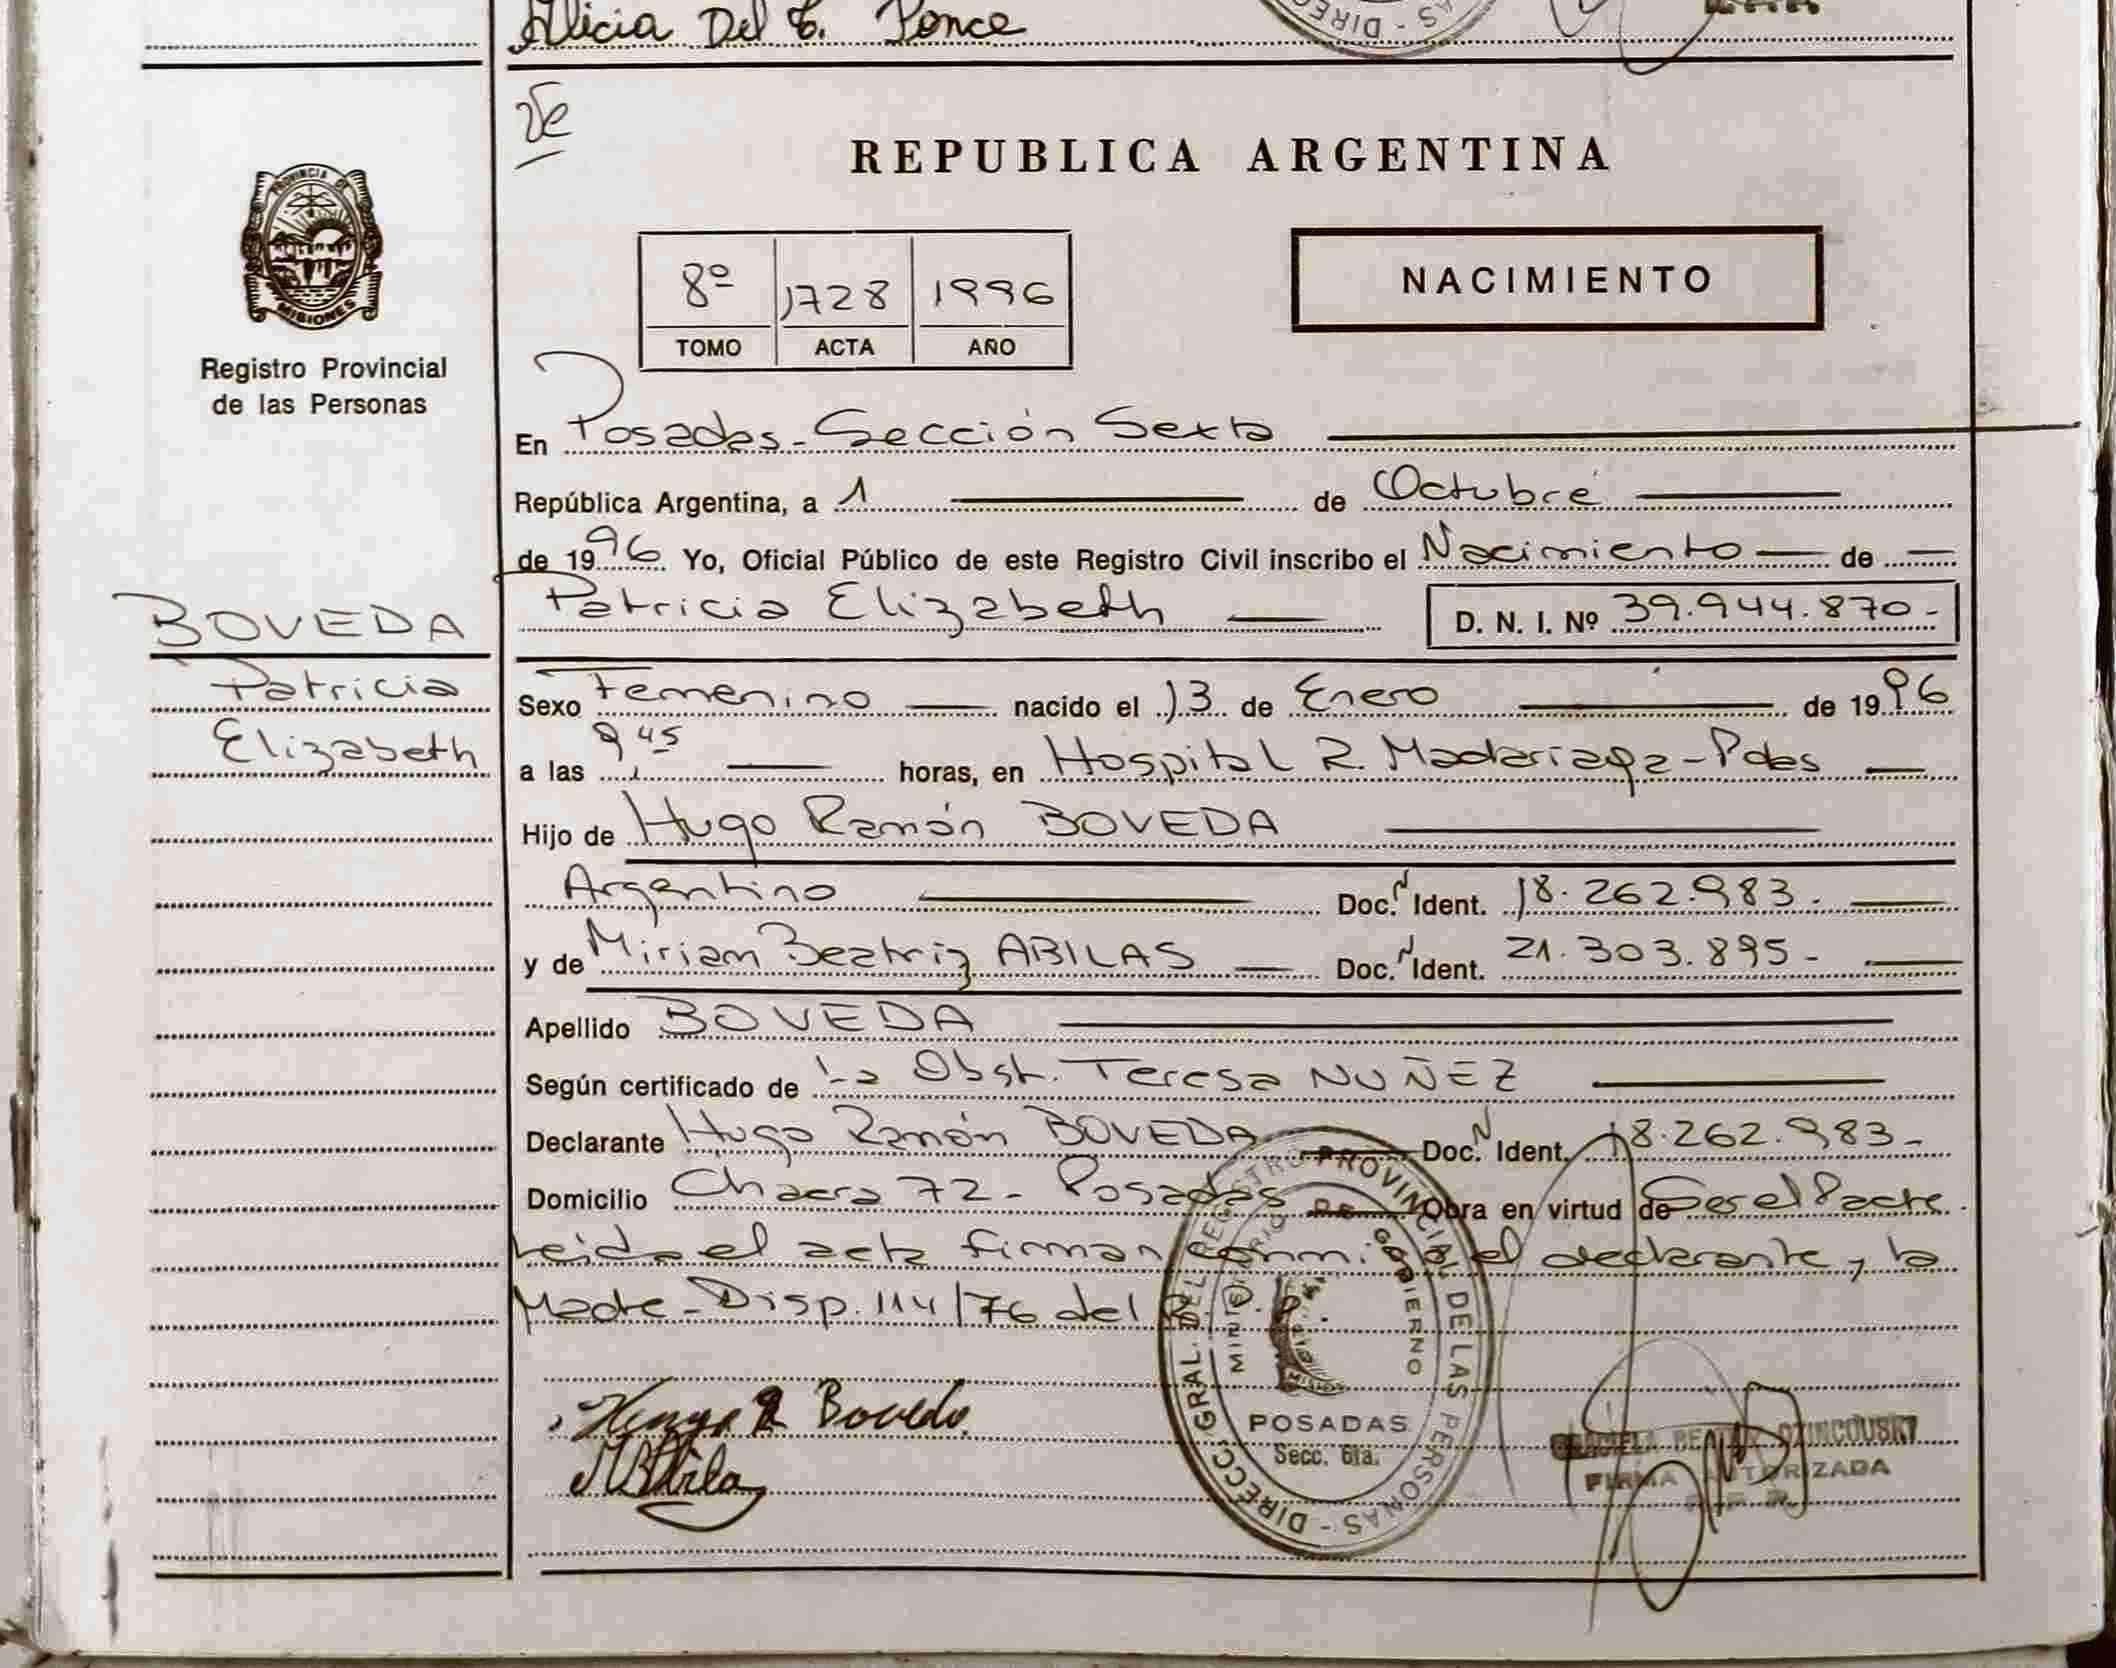 Alicia Del C. Ponce
REPUBLICA ARGENTINA
PROVINCIA DE
MISIONES
Registro Provincial
de las Personas
8º 1728 1996
TOMO ACTA AÑO
NACIMIENTO
En Posadas - Sección Sexta
República Argentina, a 1 de Octubre
de 1996 Yo, Oficial Público de este Registro Civil inscribo el Nacimiento de
BOVEDA
Patricia
Elizabeth
Patricia Elizabeth D. N. I. Nº 39.944.870-
Sexo Femenino nacido el 13 de Enero de 1996
a las 9,45 horas, en Hospital R. Madariaga - Pdas
Hijo de Hugo Ramón BOVEDA
Argentino Doc. N Ident. 18.262.983.
y de Miriam Beatriz ABILAS Doc. N Ident. 21.303.895-
Apellido BOVEDA
Según certificado de La Obst. Teresa NUÑEZ
Declarante Hugo Ramón BOVEDA Doc. N Ident. 18.262.983-
Domicilio Chacra 72- Posadas Obra en virtud de Ser el Padre
Leida el acta firman conmigo el declarante, la
Madre - Disp. 114/76 del R.P.P.
DIRECC. GRAL. DEL REGISTRO PROVINCIAL DE LAS PERSONAS
MINISTERIO DE GOBIERNO
POSADAS
Secc. 6ta.
Hugo R Boveda
GRACIELA BEATRIZ OZINCOUSKY
FIRMA AUTORIZADA